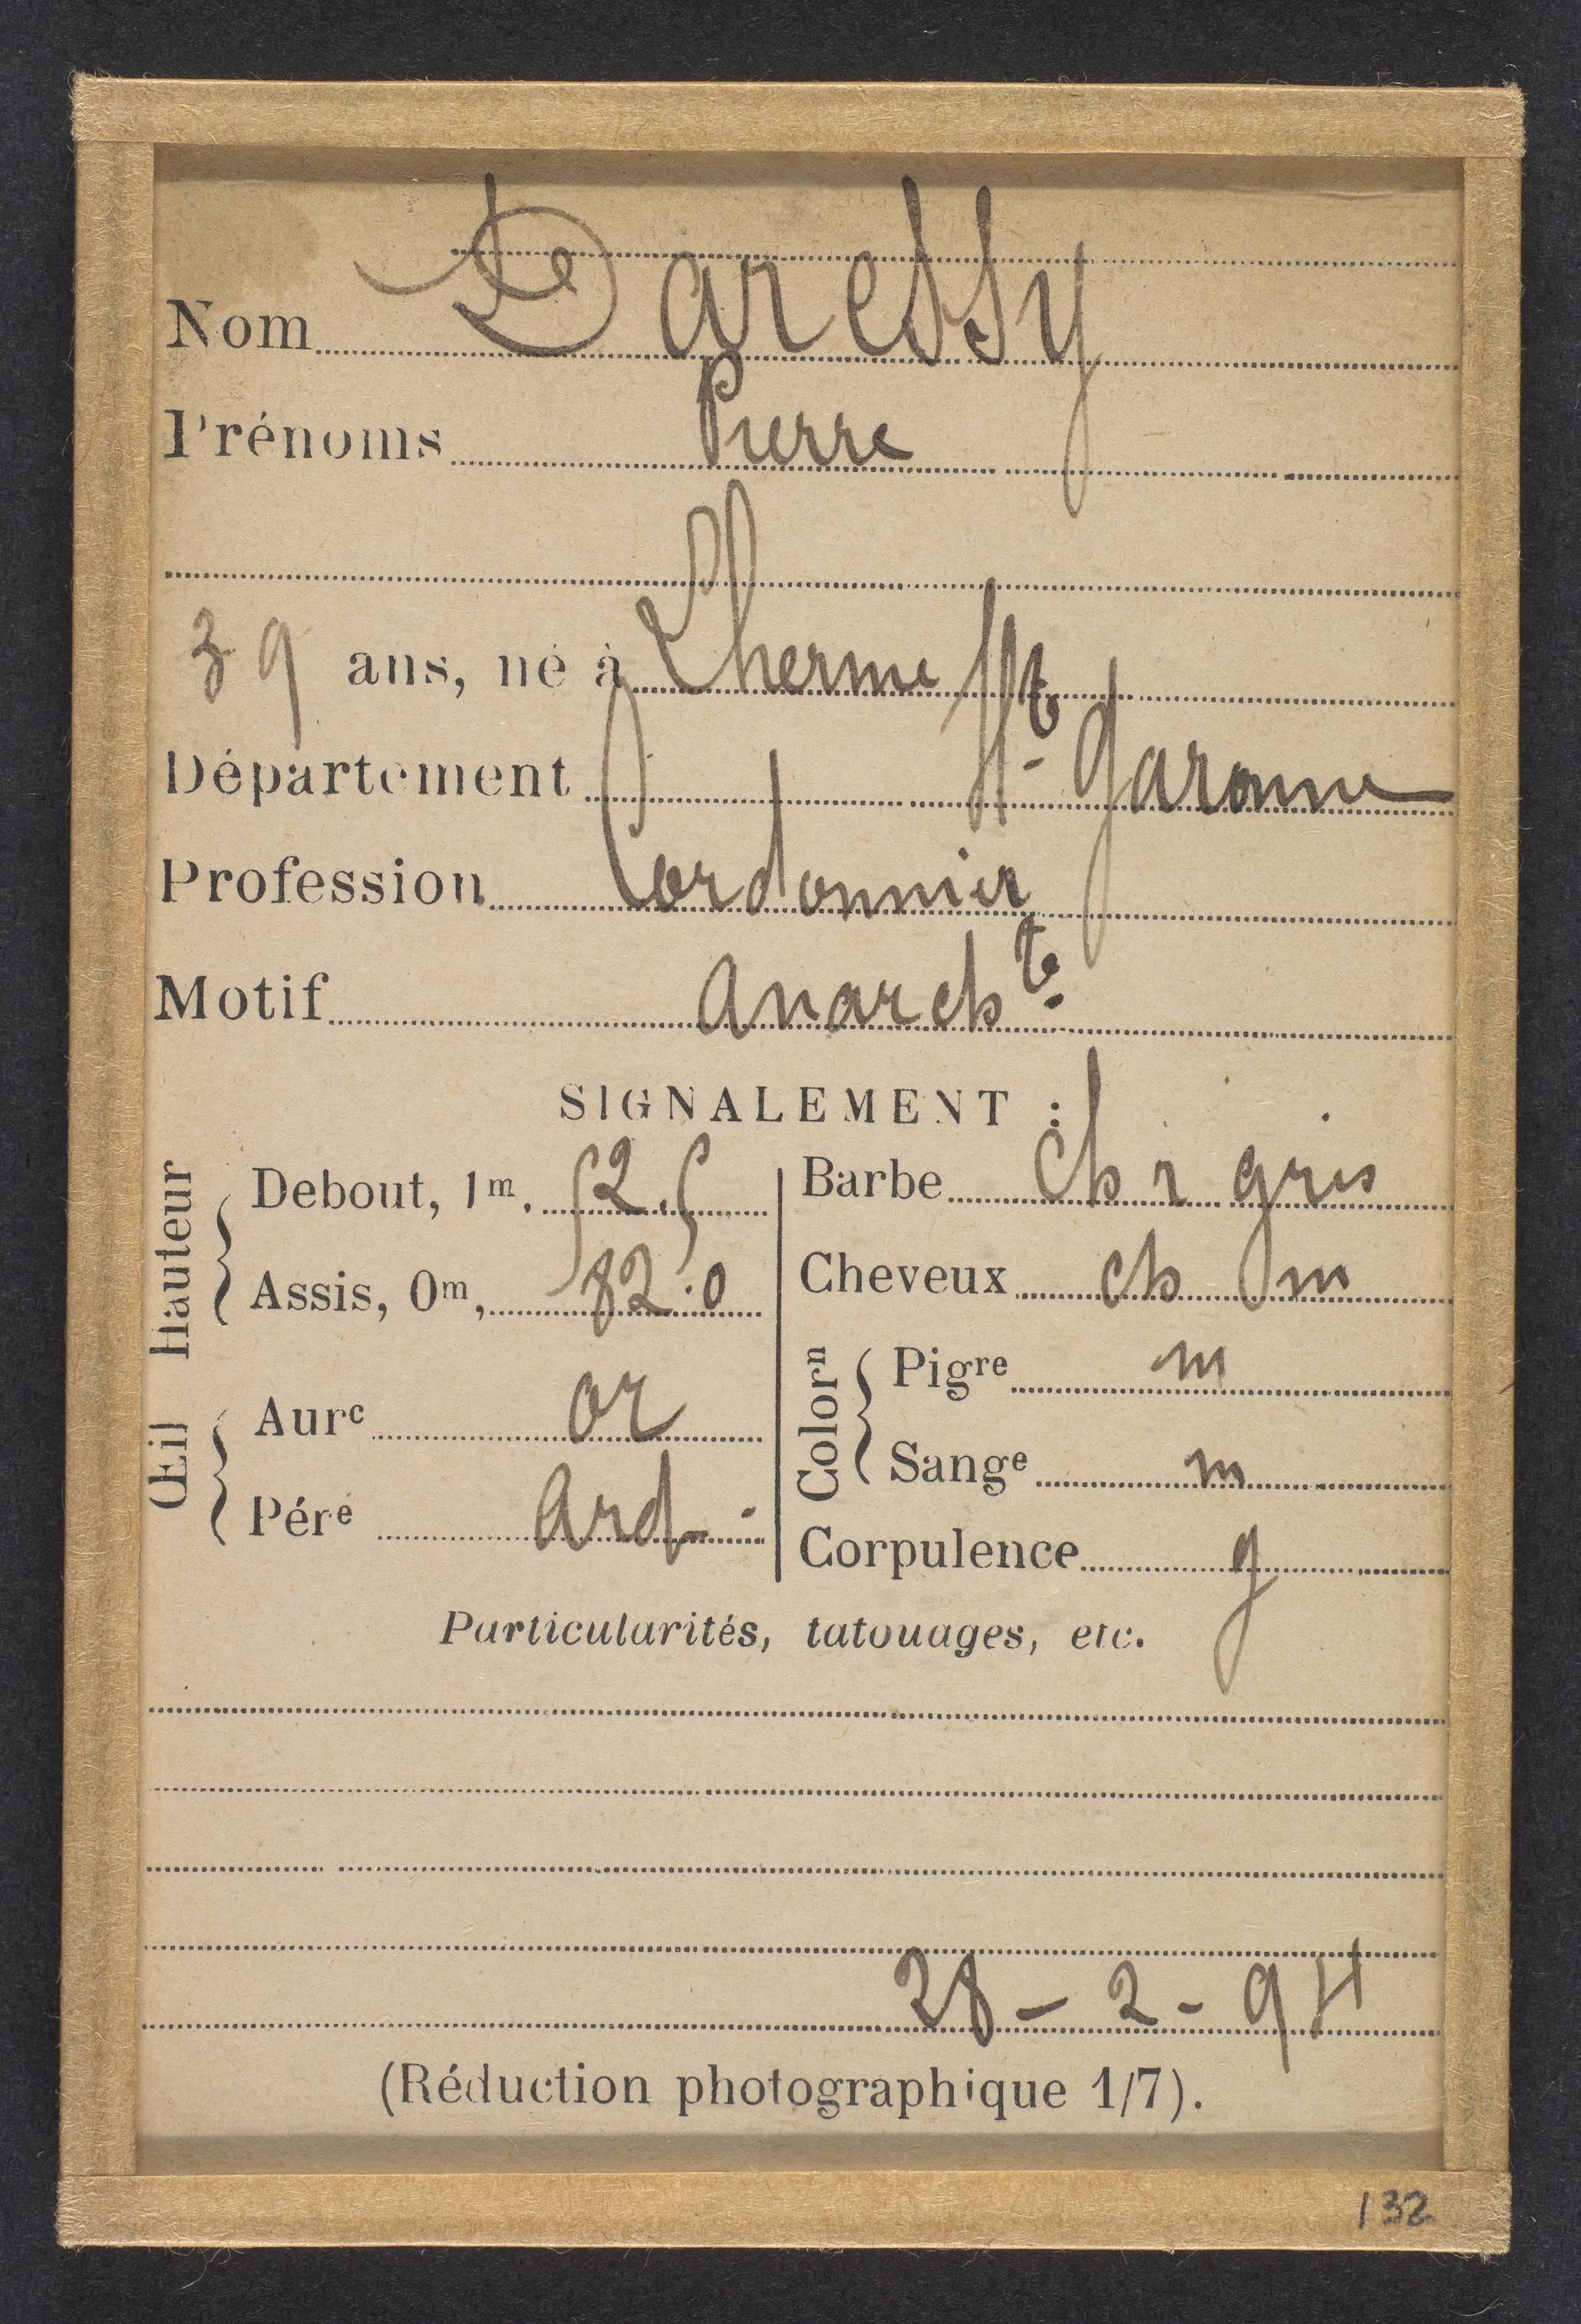 Nom Daressy
Prénoms Pierre
39 ans, né à Lherme Hte
Département Hte Garonne
Profession Cordonnier
Motif Anarchte.
SIGNALEMENT :
Hauteur
Debout, 1m, 52.5
Assis, 0m, 82.0
Œil
Aurc or
Pére Ard-
Barbe ch r gris
Cheveux ch m
Colorn
Pigre m
Sange m
Corpulence g
Particularités, tatouages, etc.
28-2-94
(Réduction photographique 1/7).
132